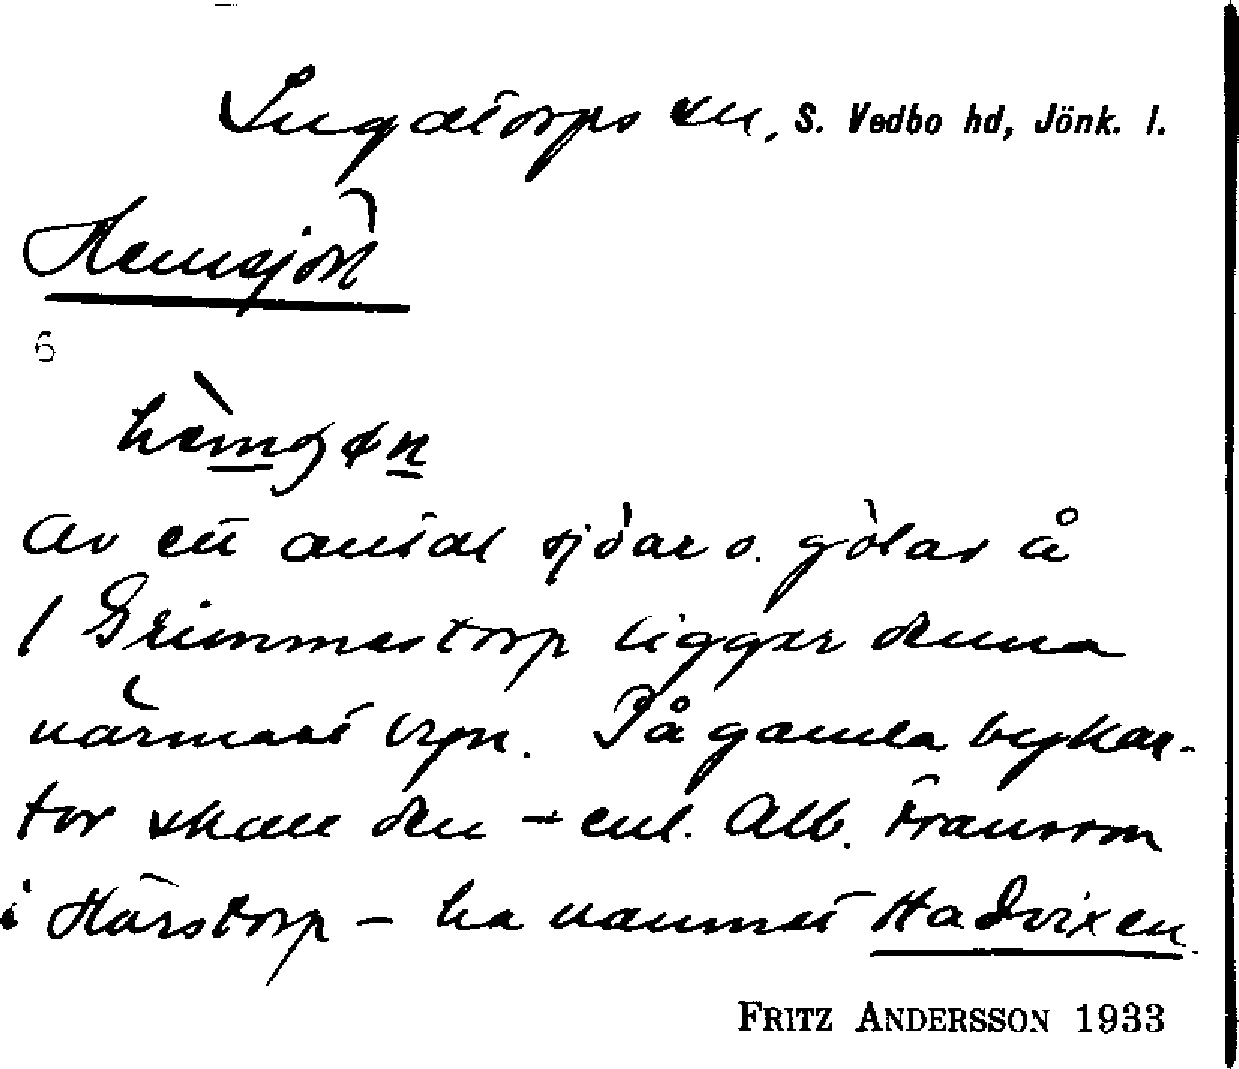 Ingatorps sn, S. Vedbo hd, Jönk. l.
Hemsjön
6
hèmʒøn
Av ett antal sjöar o. gölar å
/ Grimmestorp ligger denna
närmast byn. På gamla bykar-
tor skall den - enl. Alb. Fransson
i Härstorp - ha namnet Hadvixen.
FRITZ ANDERSSON 1933